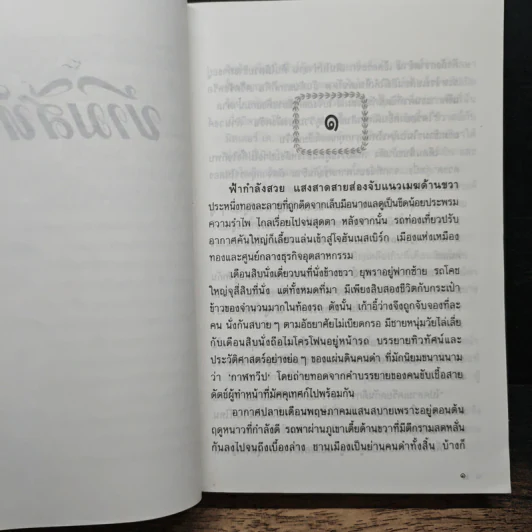 ๑
ฟ้ากำลังสวย แสงสาดสายส่องจับแนวเมฆด้านขวา
ประหนึ่งทองละลายที่ถูกดีดจากเล็บมือนางแลดูเป็นขีดน้อยประพรม
ความร่ำไพ ไกลเรื่อยไปจนสุดตา หลังจากนั้น รถท่องเที่ยวปรับ
อากาศคันใหญ่ก็เลี้ยวแล่นเข้าสู่โจฮันเนสเบิร์ก เมืองแห่งเหมือง
ทองและศูนย์กลางธุรกิจอุตสาหกรรม
เดือนสิบนั่งเดี่ยวบนที่นั่งข้างขวา ยุพราอยู่ฟากซ้าย รถโคช
ใหญ่จุสี่สิบที่นั่ง แต่ทั้งหมดที่มา มีเพียงสิบสองชีวิตกับกระเป๋า
ข้าวของจำนวนมากในท้องรถ ดังนั้น เก้าอี้ว่างจึงถูกจับจองที่ละ
คน นั่งกันสบายๆ ตามอัธยาศัยไม่เบียดกรอ มีชายหนุ่มวัยไล่เลี่ย
กับเดือนสิบนั่งถือไมโครโฟนอยู่หน้ารถ บรรยายทิวทัศน์และ
ประวัติศาสตร์อย่างย่อๆ ของแผ่นดินคนดำ ที่มักนิยมขนานนาม
ว่า 'กาฬทวีป' โดยถ่ายทอดจากคำบรรยายของคนขับเชื้อสาย
ดัตช์ผู้ทำหน้าที่มัคคุเทศก์ไปพร้อมกัน
อากาศปลายเดือนพฤษภาคมแสนสบายเพราะอยู่ตอนต้น
ฤดูหนาวที่กำลังดี รถพาผ่านภูเขาเตี้ยด้านขวาที่มีตึกรามลดหลั่น
กันลงไปจนถึงเบื้องล่าง ชานเมืองเป็นย่านคนดำทั้งสิ้น บ้างก็
๑